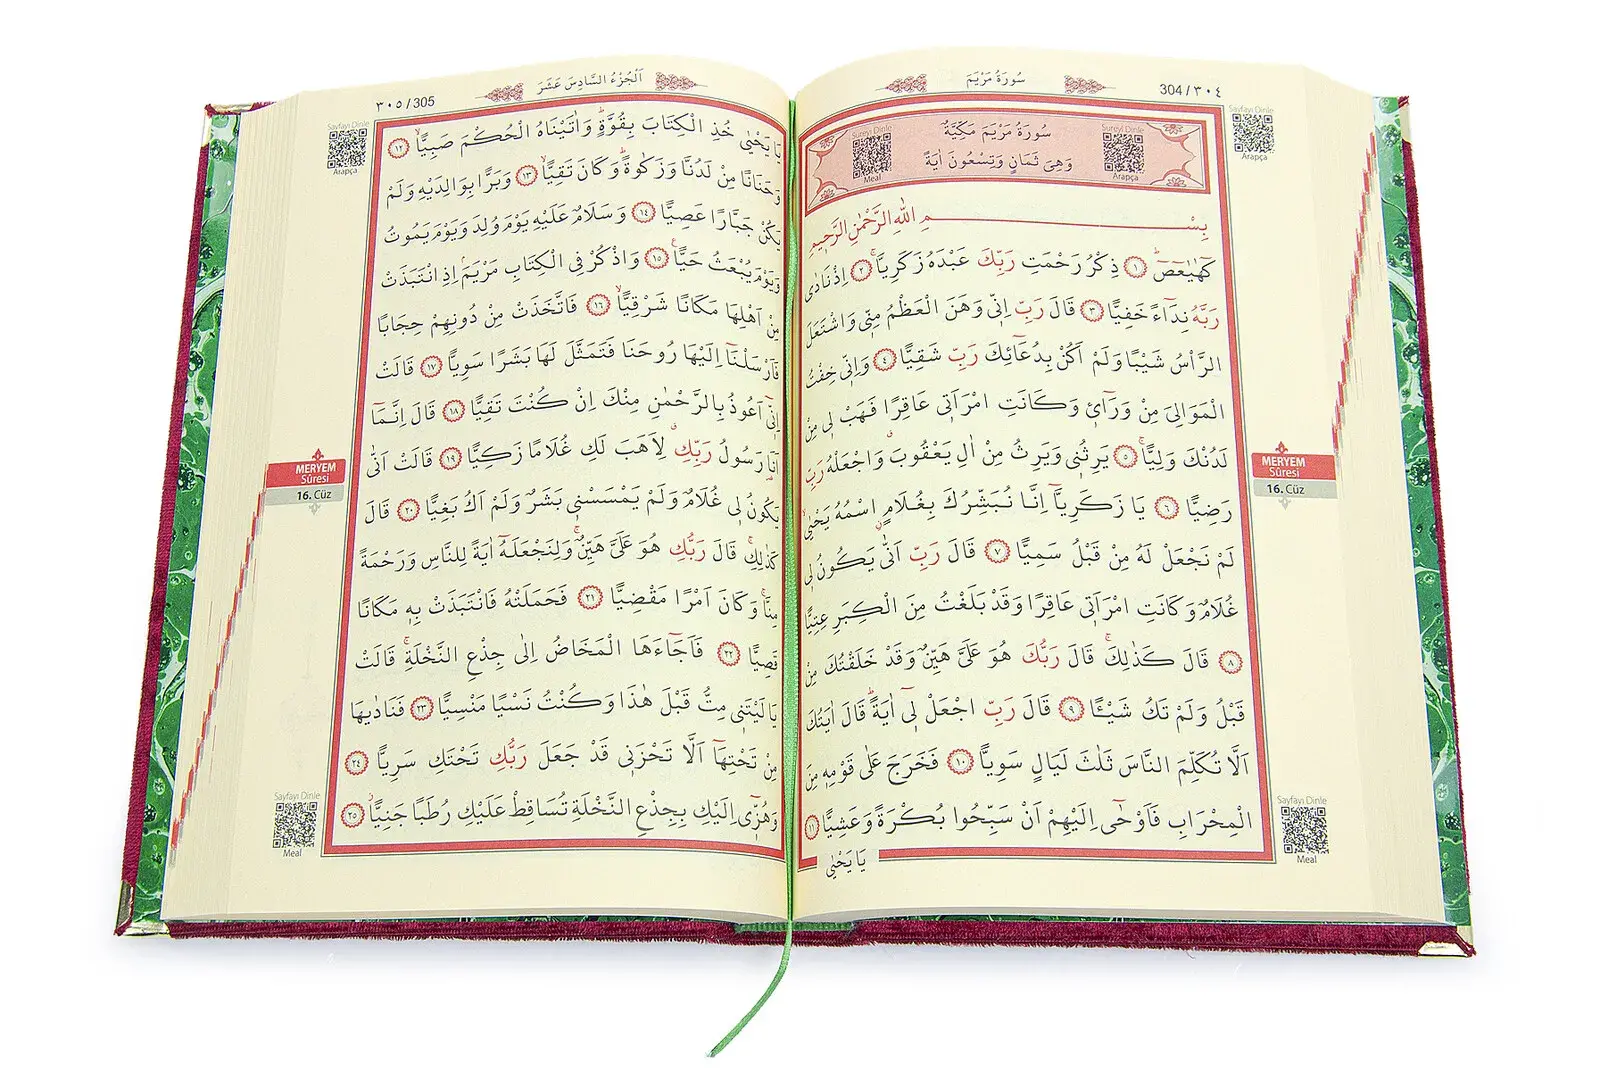 سُورَةُ مَرْيَمَ
304 / ٣٠٤
Sayfayı Dinle
Arapça
Sureyi Dinle
Meal
سُورَةُ مَرْيَمَ مَكِّيَّةٌ
وَهِيَ ثَمَانٍ وَتِسْعُونَ اٰيَةً
Sureyi Dinle
Arapça
بِسْمِ اللهِ الرَّحْمٰنِ الرَّحِيمِ
كٓهٰيٰعٓصٓ ١ ذِكْرُ رَحْمَتِ رَبِّكَ عَبْدَهُ زَكَرِيَّا ٢ اِذْ نَادٰى
رَبَّهُ نِدَٓاءً خَفِيًّا ٣ قَالَ رَبِّ اِنّٖي وَهَنَ الْعَظْمُ مِنّٖي وَاشْتَعَلَ
الرَّأْسُ شَيْبًا وَلَمْ اَكُنْ بِدُعَٓائِكَ رَبِّ شَقِيًّا ٤ وَاِنّٖي خِفْتُ
الْمَوَالِيَ مِنْ وَرَٓاءٖي وَكَانَتِ امْرَاَتٖي عَاقِرًا فَهَبْ لٖي مِنْ
لَدُنْكَ وَلِيًّا ٥ يَرِثُنٖي وَيَرِثُ مِنْ اٰلِ يَعْقُوبَ وَاجْعَلْهُ رَبِّ
رَضِيًّا ٦ يَا زَكَرِيَّٓا اِنَّا نُبَشِّرُكَ بِغُلَامٍ اسْمُهُ يَحْيٰى
لَمْ نَجْعَلْ لَهُ مِنْ قَبْلُ سَمِيًّا ٧ قَالَ رَبِّ اَنّٰى يَكُونُ لٖي
غُلَامٌ وَكَانَتِ امْرَاَتٖي عَاقِرًا وَقَدْ بَلَغْتُ مِنَ الْكِبَرِ عِتِيًّا
٨ قَالَ كَذٰلِكَ قَالَ رَبُّكَ هُوَ عَلَيَّ هَيِّنٌ وَقَدْ خَلَقْتُكَ مِنْ
قَبْلُ وَلَمْ تَكُ شَيْـًٔا ٩ قَالَ رَبِّ اجْعَلْ لٖٓي اٰيَةً قَالَ اٰيَتُكَ
اَلَّا تُكَلِّمَ النَّاسَ ثَلٰثَ لَيَالٍ سَوِيًّا ١٠ فَخَرَجَ عَلٰى قَوْمِهٖ مِنَ
الْمِحْرَابِ فَاَوْحٰٓى اِلَيْهِمْ اَنْ سَبِّحُوا بُكْرَةً وَعَشِيًّا ١١
يَا يَحْيٰى
MERYEM
Sûresi
16. Cüz
Sayfayı Dinle
Meal
٣٠٥ / 305
اَلْجُزْءُ السَّادِسَ عَشَرَ
Sayfayı Dinle
Arapça
يَا يَحْيٰى خُذِ الْكِتَابَ بِقُوَّةٍ وَاٰتَيْنَاهُ الْحُكْمَ صَبِيًّا ١٢
وَحَنَانًا مِنْ لَدُنَّا وَزَكٰوةً وَكَانَ تَقِيًّا ١٣ وَبَرًّا بِوَالِدَيْهِ وَلَمْ
يَكُنْ جَبَّارًا عَصِيًّا ١٤ وَسَلَامٌ عَلَيْهِ يَوْمَ وُلِدَ وَيَوْمَ يَمُوتُ
وَيَوْمَ يُبْعَثُ حَيًّا ١٥ وَاذْكُرْ فِي الْكِتَابِ مَرْيَمَ اِذِ انْتَبَذَتْ
مِنْ اَهْلِهَا مَكَانًا شَرْقِيًّا ١٦ فَاتَّخَذَتْ مِنْ دُونِهِمْ حِجَابًا
فَاَرْسَلْنَٓا اِلَيْهَا رُوحَنَا فَتَمَثَّلَ لَهَا بَشَرًا سَوِيًّا ١٧ قَالَتْ
اِنّٖٓي اَعُوذُ بِالرَّحْمٰنِ مِنْكَ اِنْ كُنْتَ تَقِيًّا ١٨ قَالَ اِنَّمَٓا
اَنَا رَسُولُ رَبِّكِ لِاَهَبَ لَكِ غُلَامًا زَكِيًّا ١٩ قَالَتْ اَنّٰى
يَكُونُ لٖي غُلَامٌ وَلَمْ يَمْسَسْنٖي بَشَرٌ وَلَمْ اَكُ بَغِيًّا ٢٠ قَالَ
كَذٰلِكِ قَالَ رَبُّكِ هُوَ عَلَيَّ هَيِّنٌ وَلِنَجْعَلَهُٓ اٰيَةً لِلنَّاسِ وَرَحْمَةً
مِنَّا وَكَانَ اَمْرًا مَقْضِيًّا ٢١ فَحَمَلَتْهُ فَانْتَبَذَتْ بِهٖ مَكَانًا
قَصِيًّا ٢٢ فَاَجَٓاءَهَا الْمَخَاضُ اِلٰى جِذْعِ النَّخْلَةِ قَالَتْ
يَا لَيْتَنٖي مِتُّ قَبْلَ هٰذَا وَكُنْتُ نَسْيًا مَنْسِيًّا ٢٣ فَنَادٰيهَا
مِنْ تَحْتِهَٓا اَلَّا تَحْزَنٖي قَدْ جَعَلَ رَبُّكِ تَحْتَكِ سَرِيًّا ٢٤
وَهُزّٖٓي اِلَيْكِ بِجِذْعِ النَّخْلَةِ تُسَاقِطْ عَلَيْكِ رُطَبًا جَنِيًّا ٢٥
MERYEM
Sûresi
16. Cüz
Sayfayı Dinle
Meal